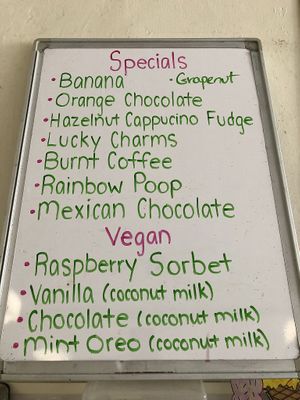 Specials
•Banana •Grapenut
•Orange Chocolate
•Hazelnut Cappucino Fudge
•Lucky Charms
•Burnt Coffee
•Rainbow Poop
•Mexican Chocolate
Vegan
•Raspberry Sorbet
•Vanilla (coconut milk)
•Chocolate (coconut milk)
•Mint Oreo (coconut milk)